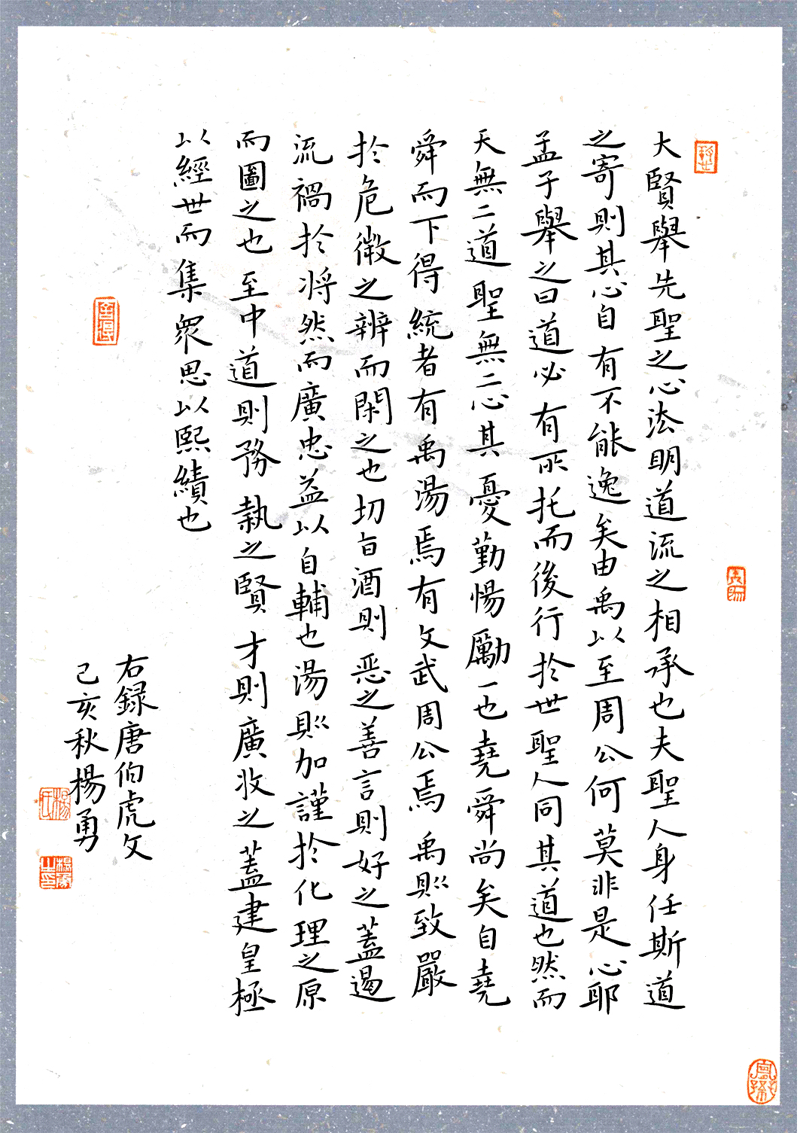 大賢舉先聖之心法明道流之相承也夫聖人身任斯道
之寄則其心自有不能逸矣由禹以至周公何莫非是心耶
孟子舉之曰道必有所托而後行於世聖人同其道也然而
天無二道聖無二心其憂勤惕勵一也堯舜尚矣自堯
舜而下得統者有禹湯焉有文武周公焉禹則致嚴
於危微之辨而閑之也切旨酒則惡之善言則好之蓋遏
流禍於将然而廣忠益以自輔也湯則加謹於化理之原
而圖之也至中道則務執之賢才則廣收之蓋建皇極
以經世而集眾思以熙績也
右錄唐伯虎文
己亥秋楊勇